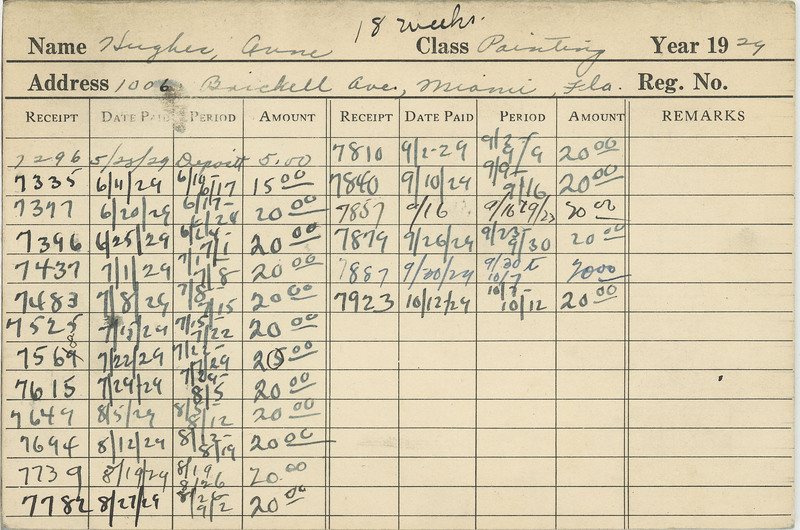 18 weeks.
Name Hughes, Anne Class Painting Year 1929
Address 1006 Brickell Ave., Miami, Fla. Reg. No.
RECEIPT DATE PAID PERIOD AMOUNT RECEIPT DATE PAID PERIOD AMOUNT REMARKS
7296 5/23/29 Deposit 5.00 7810 9/2-29 9/2- 9/9 20 00
7335 6/4/29 6/10- 6/17 15 00 7840 9/10/29 9/9- 9/16 20 00
7347 6/20/29 6/17- 6/24 20 00 7857 9/16 9/16 9/23 20 00
7396 6/25/29 6/24- 7/1 20 00 7879 9/26/29 9/23- 9/30 20 00
7437 7/1/29 7/1- 7/8 20 00 7887 9/30/29 9/30 t 10/7 20 00
7483 7/8/29 7/8- 7/15 20 00 7923 10/12/29 10/7- 10/12 20 00
7525 7/15/29 7/15- 7/22 20 00
7569 7/22/29 7/22- 7/29 20 00
7615 7/29/29 7/29- 8/5 20 00
7649 8/5/29 8/5- 8/12 20 00
7694 8/12/29 8/12- 8/19 20 00
7739 8/19/29 8/19 8/26 20.00
7782 8/27/29 8/26 9/2 20 00